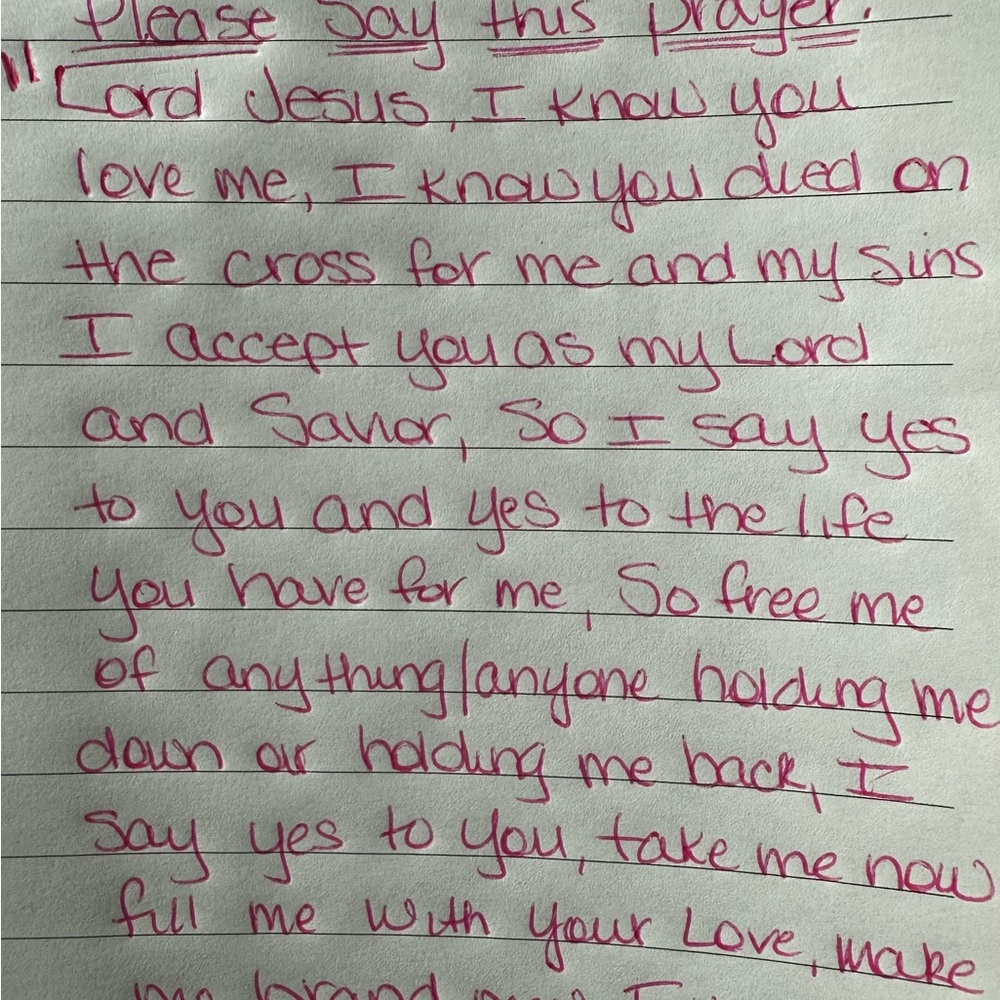 Please Say this prayer.
"Lord Jesus, I know you
love me, I know you died on
the cross for me and my sins
I accept you as my Lord
and Savior, So I say yes
to you and yes to the life
you have for me, So free me
of anything/anyone holding me
down or holding me back, I
Say yes to you, take me now
fill me with your Love, make
me brand new I